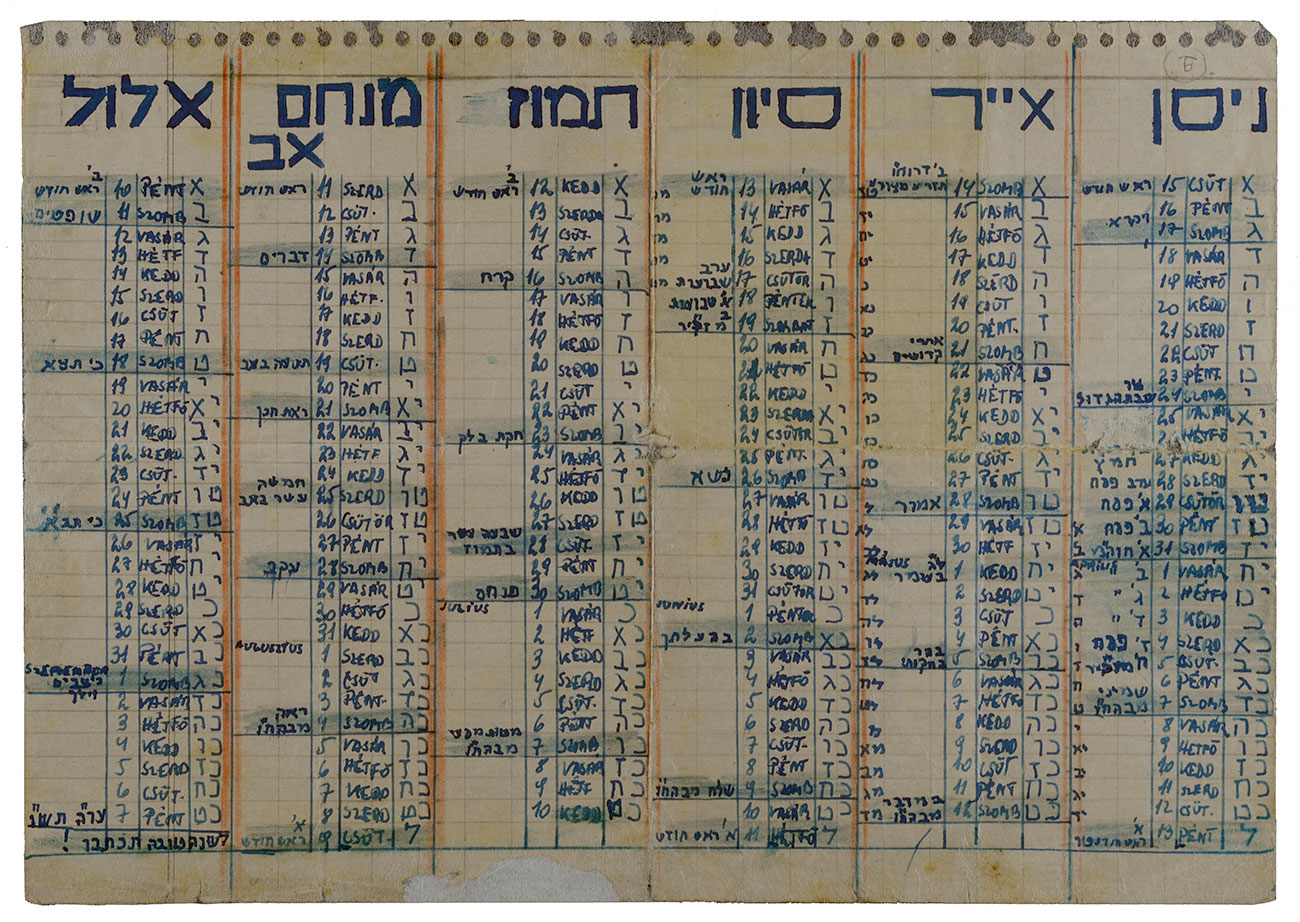 ניסן
א CSÜT 15 ראש חודש
ב PÉNT 16
ג SZOMB 17 ויקרא
ד VASÁR 18
ה HÉTFŐ 19
ו KEDD 20
ז SZERD 21
ח CSÜT 22
ט PÉNT. 23
י SZOMB 24 שבת הגדול
יא VASÁR 25
יב HÉTFŐ
יג KEDD 27 חמץ
יד SZERD 28 ערב פסח
טו CSÜTÖR 29 א' פסח
טז PÉNT 30 ב' פסח
יז SZOMB 31
יח VASÁR 1 ב'
יט HÉTFŐ 2 ג' "
כ KEDD 3 ד' "
כא SZERD 4 ז' פסח
כב CSÜT. 5
כג PÉNT 6
כד SZOMB 7 שמיני מבהח"ו
כה VASÁR 8
כו HÉTFŐ 9
כז KEDD 10
כח SZERD 11
כט CSÜT. 12
ל PÉNT 13 א'
אייר
א SZOMB 14 תזריע מצורע
ב VASÁR 15
ג HÉTFŐ 16
ד KEDD 17
ה SZERD 18
ו CSÜT 19
ז PÉNT. 20
ח SZOMB 21 אחרי קדושים
ט VASÁR 22
י HÉTF 23
יא KEDD 24
יב SZERD 25
יג CSÜT. 26
יד PÉNT 27
טו SZOMB 28 אמור
טז VASÁR 29
יז HÉTF 30
MÁJUS
יח KEDD 1 לג בעומר
יט SZERD 2
כ CSÜT 3
כא PÉNT 4
כב SZOMB 5 בהר בחקותי
כג VASÁR 6
כד HÉTF 7
כה KEDD 8
כו SZERD 9
כז CSÜT 10
כח PÉNT 11
כט SZOMB 12 במדבר מבהח"ו
סיון
א VASÁR 13 ראש חודש
ב HÉTFŐ 14
ג KEDD 15
ד SZERDA 16
ה CSÜTÖR 17 ערב שבועות
ו PÉNTEK 18 א' שבועות
ז SZOMBAT 19 ב' מזכיר
ח VASÁR 20
ט HÉTFŐ 21
י KEDD 22
יא SZERDA 23
יב CSÜTÖR 24
יג PÉNT. 25
יד SZOMB 26 נשא
טו VASÁR 27
טז HÉTFŐ 28
יז KEDD 29
יח SZERD 30
יט CSÜTÖR 31
JUNIUS
כ PÉNTEK 1
כא SZOMB 2 בהעלתך
כב VASÁR 3
כג HÉTFŐ 4
כד KEDD 5
כה SZERD 6
כו CSÜT. 7
כז PÉNT 8
כח SZOMB 9 שלח מבהח"ו
כט VASÁR 10
ל HÉTFŐ 11 א' ראש חודש
תמוז
א KEDD 12 ב' ראש חודש
ב SZERDA 13
ג CSÜT. 14
ד PÉNT 15
ה SZOMB 16 קרח
ו VASÁR 17
ז HÉTFŐ 18
ח KEDD 19
ט SZERD 20
י CSÜT 21
יא PÉNT 22
יב SZOMB 23 חקת בלק
יג VASÁR 24
יד HÉTFŐ 25
טו KEDD 26
טז SZERD 27
יז CSÜT. 28 שבעה עשר בתמוז
יח PÉNT 29
יט SZOMB 30 פנחס
JULIUS
כ VASÁR 1
כא HÉTF 2
כב KEDD 3
כג SZERD 4
כד CSÜT 5
כה PÉNT 6
כו SZOMB 7 מטות מסעי מבהח"ו
כז VASÁR 8
כח HÉTF 9
כט KEDD 10
מנחם אב
א SZERD 11 ראש חודש
ב CSÜT. 12
ג PÉNT 13
ד SZOMB 14 דברים
ה VASÁR 15
ו HÉTF. 16
ז KEDD 17
ח SZERD 18
ט CSÜT. 19 תשעה באב
י PÉNT 20
יא SZOMB 21 ואתחנן
יב VASÁR 22
יג HÉTF 23
יד KEDD 24
טו SZERD 25 חמשה עשר באב
טז CSÜTÖR 26
יז PÉNT 27
יח SZOMB 28 עקב
יט VASÁR 29
כ HÉTFŐ 30
כא KEDD 31
AUGUSZTUS
כב SZERD 1
כג CSÜT 2
כד PÉNT. 3
כה SZOMB 4 ראה מבהח"ו
כו VASÁR 5
כז HÉTFŐ 6
כח KEDD 7
כט SZERD 8
ל CSÜT. 9 א' ראש חודש
אלול
א PÉNT 10 ב' ראש חודש
ב SZOMB 11 שופטים
ג VASÁR 12
ד HÉTF 13
ה KEDD 14
ו SZERD 15
ז CSÜT 16
ח PÉNT 17
ט SZOMB 18 כי תצא
י VASÁR 19
יא HÉTFŐ 20
יב KEDD 21
יג SZERD 22
יד CSÜT. 23
טו PÉNT 24
טז SZOMB 25 כי תבא
יז VASÁR 26
יח HÉTFŐ 27
יט KEDD 28
כ SZERD 29
כא CSÜT 30
כב PÉNT 31
כג SZOMB 1 נצבים וילך
כד VASÁR 2
כה HÉTFŐ 3
כו KEDD 4
כז SZERD 5
כח CSÜT. 6
כט PÉNT 7 ער"ה תש"ו
לשנה טובה תכתבו!